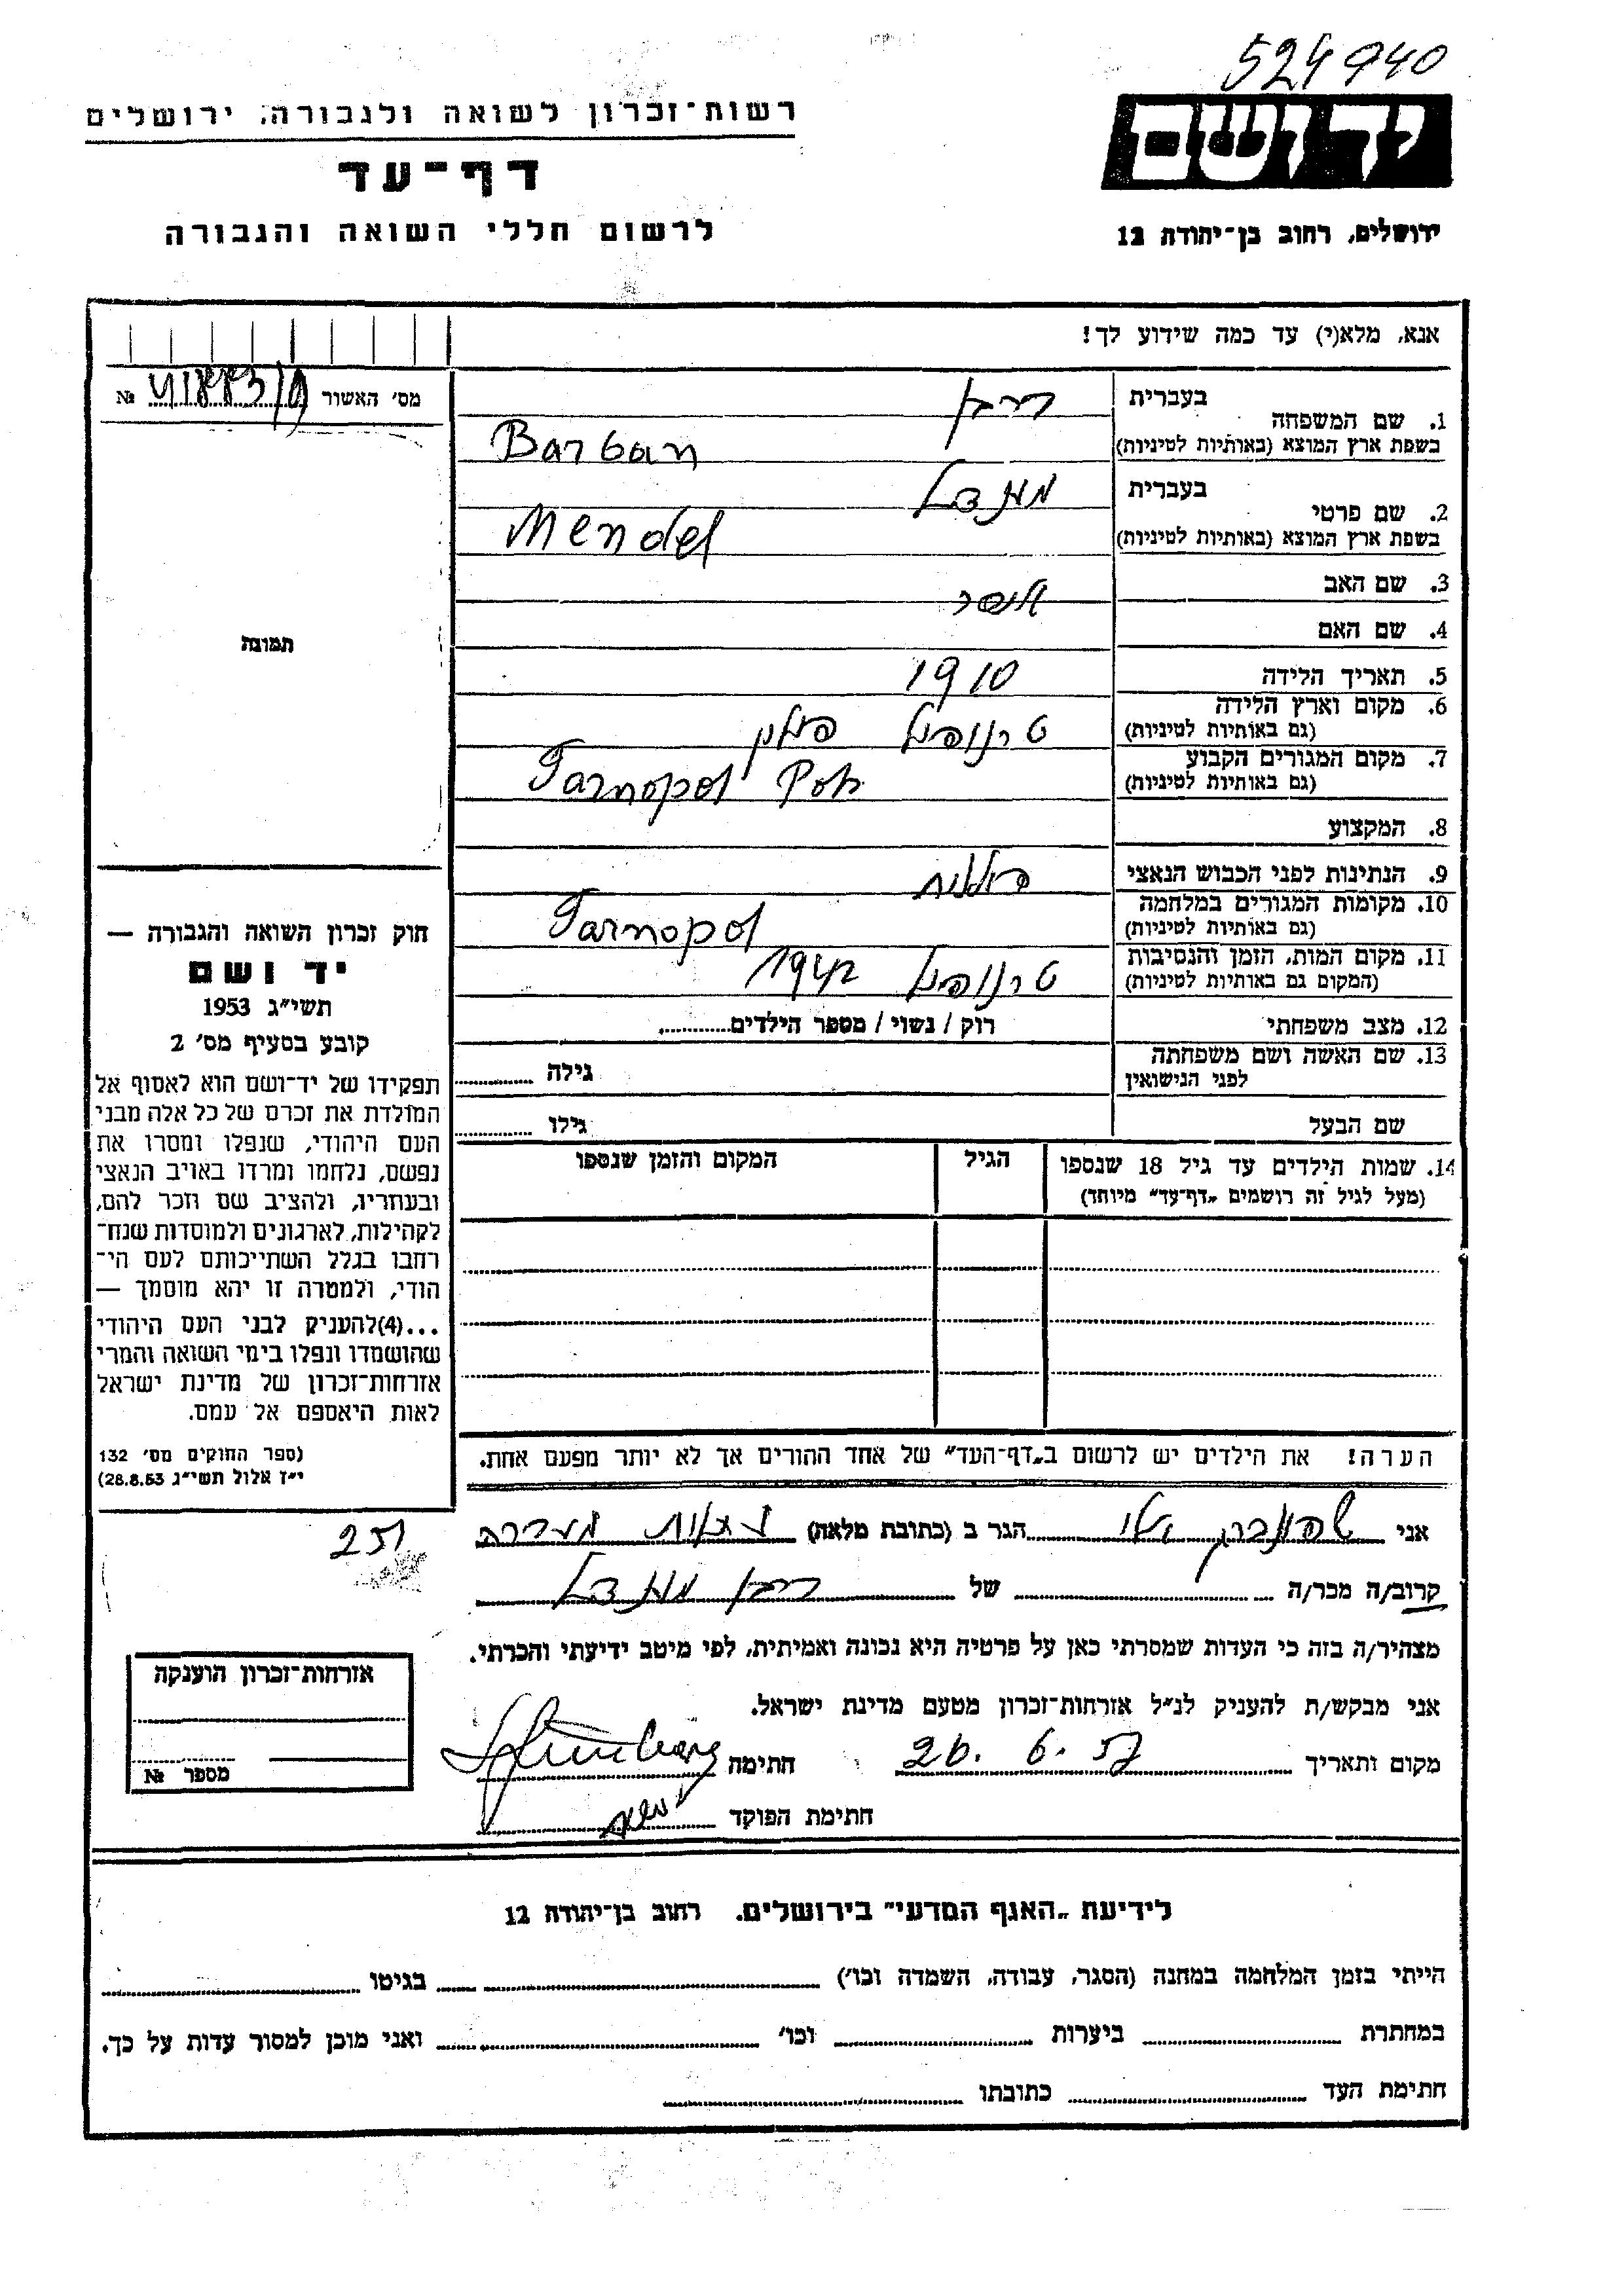 524940
ידושם
ירושלים, רחוב בן־יהודה 12
רשות־זכרון לשואה ולגבורה, ירושלים
דף־עד
לרשום חללי השואה והגבורה
אנא, מלא(י) עד כמה שידוע לך!
מס׳ האשור №
תמונה
1. שם המשפחה
בעברית ברבן
בשפת ארץ המוצא (באותיות לטיניות) Barban
2. שם פרטי
בעברית מנדל
בשפת ארץ המוצא (באותיות לטיניות) Mendel
3. שם האב אשר
4. שם האם
5. תאריך הלידה 1910
6. מקום וארץ הלידה טרנופול פולין
(גם באותיות לטיניות)
7. מקום המגורים הקבוע Tarnopol
(גם באותיות לטיניות)
8. המקצוע
9. הנתינות לפני הכבוש הנאצי פולנית
10. מקומות המגורים במלחמה Tarnopol
(גם באותיות לטיניות)
11. מקום המות, הזמן והנסיבות טרנופול 1942
(המקום גם באותיות לטיניות)
12. מצב משפחתי רוק / נשוי / מספר הילדים
13. שם האשה ושם משפחתה
לפני הנישואין גילה
שם הבעל גילו
14. שמות הילדים עד גיל 18 שנספו הגיל המקום והזמן שנספו
(מעל לגיל זה רושמים „דף־עד״ מיוחד)
הערה! את הילדים יש לרשום ב„דף־העד״ של אחד ההורים אך לא יותר מפעם אחת.
חוק זכרון השואה והגבורה —
יד ושם
תשי״ג 1953
קובע בסעיף מס׳ 2
תפקידו של יד־ושם הוא לאסוף אל
המולדת את זכרם של כל אלה מבני
העם היהודי, שנפלו ומסרו את
נפשם, נלחמו ומרדו באויב הנאצי
ובעוזריו, ולהציב שם וזכר להם,
לקהילות, לארגונים ולמוסדות שנח־
רבו בגלל השתייכותם לעם הי־
הודי, ולמטרה זו יהא מוסמך —
...(4)להעניק לבני העם היהודי
שהושמדו ונפלו בימי השואה והמרי
אזרחות־זכרון של מדינת ישראל
לאות היאספם אל עמם.
(ספר החוקים מס׳ 132
י״ז אלול תשי״ג 28.8.53)
251
אני הגר ב (כתובת מלאה) מעברה
קרוב/ה מכר/ה של ברבן מנדל
מצהיר/ה בזה כי העדות שמסרתי כאן על פרטיה היא נכונה ואמיתית, לפי מיטב ידיעתי והכרתי.
אני מבקש/ת להעניק לנ״ל אזרחות־זכרון מטעם מדינת ישראל.
מקום ותאריך 26. 6. 57 חתימה
חתימת הפוקד
אזרחות־זכרון הוענקה
מספר №
לידיעת „האגף המדעי״ בירושלים, רחוב בן־יהודה 12
הייתי בזמן המלחמה במחנה (הסגר, עבודה, השמדה וכו׳) בגיטו
במחתרת ביערות וכו׳ ואני מוכן למסור עדות על כך.
חתימת העד כתובתו